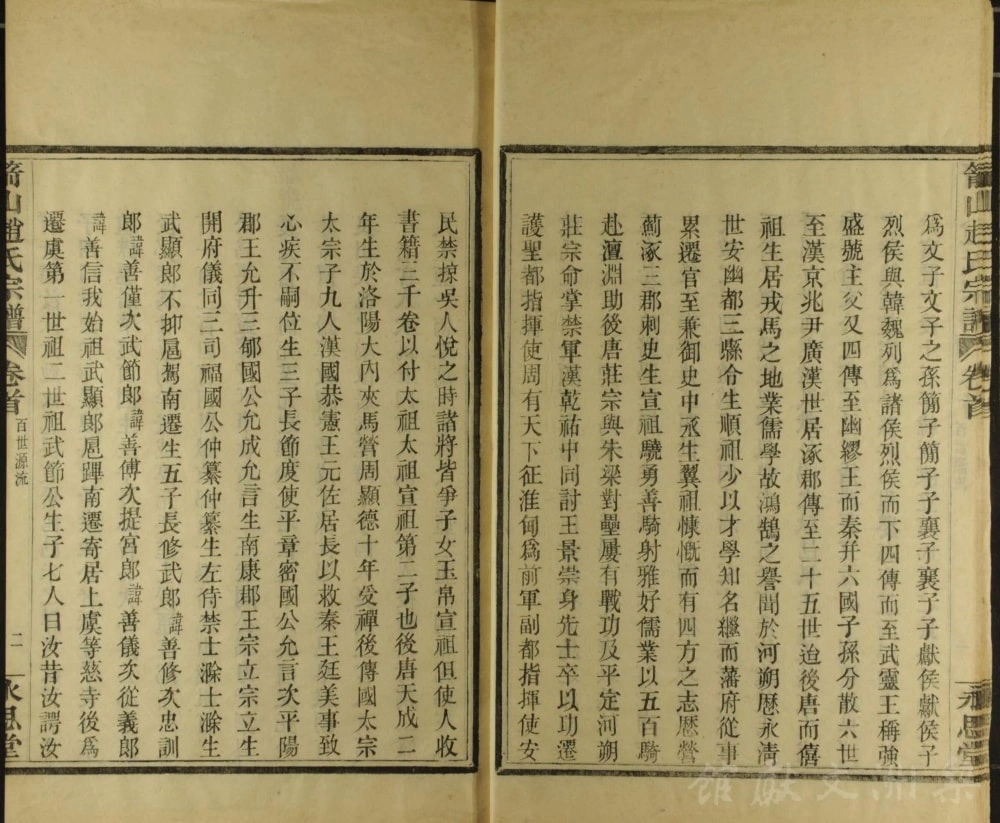 爲文子文子之孫簡子簡子子襄子襄子子獻侯獻侯子
烈侯與韓魏列爲諸侯烈侯而下四傳而至武靈王稱強
盛號主父又四傳至幽繆王而秦幷六國子孫分散六世
至漢京兆尹廣漢世居涿郡傳至二十五世迨後唐而僖
祖生居戎馬之地業儒學故鴻鵠之譽聞於河朔歷永淸
世安幽都三縣令生順祖少以才學知名繼而藩府從事
累遷官至兼御史中丞生翼祖慷慨而有四方之志歷營
薊涿三郡刺史生宣祖驍勇善騎射雅好儒業以五百騎
赴澶淵助後唐莊宗與朱梁對壘屢有戰功及平定河朔
莊宗命掌禁軍漢乾祐中同討王景崇身先士卒以功遷
護聖都指揮使周有天下征淮甸爲前軍副都指揮使安
箭山趙氏宗譜 卷首
永思堂
民禁掠吳人悅之時諸將皆爭子女玉帛宣祖但使人收
書籍三千卷以付太祖太祖宣祖第二子也後唐天成二
年生於洛陽大內夾馬營周顯德十年受禪後傳國太宗
太宗子九人漢國恭憲王元佐居長以救秦王廷美事致
心疾不嗣位生三子長節度使平章密國公允言次平陽
郡王允升三郇國公允成允言生南康郡王宗立宗立生
開府儀同三司福國公仲纂仲纂生左侍禁士滁士滁生
武顯郎不抑扈駕南遷生五子長修武郎諱善修次忠訓
郎諱善僅次武節郎諱善傅次提宮郎諱善儀次從義郎
諱善信我始祖武顯郎扈蹕南遷寄居上虞等慈寺後爲
遷虞第一世祖二世祖武節公生子七人曰汝昔汝諤汝
箭山趙氏宗譜 卷首 百世源流 二 永思堂